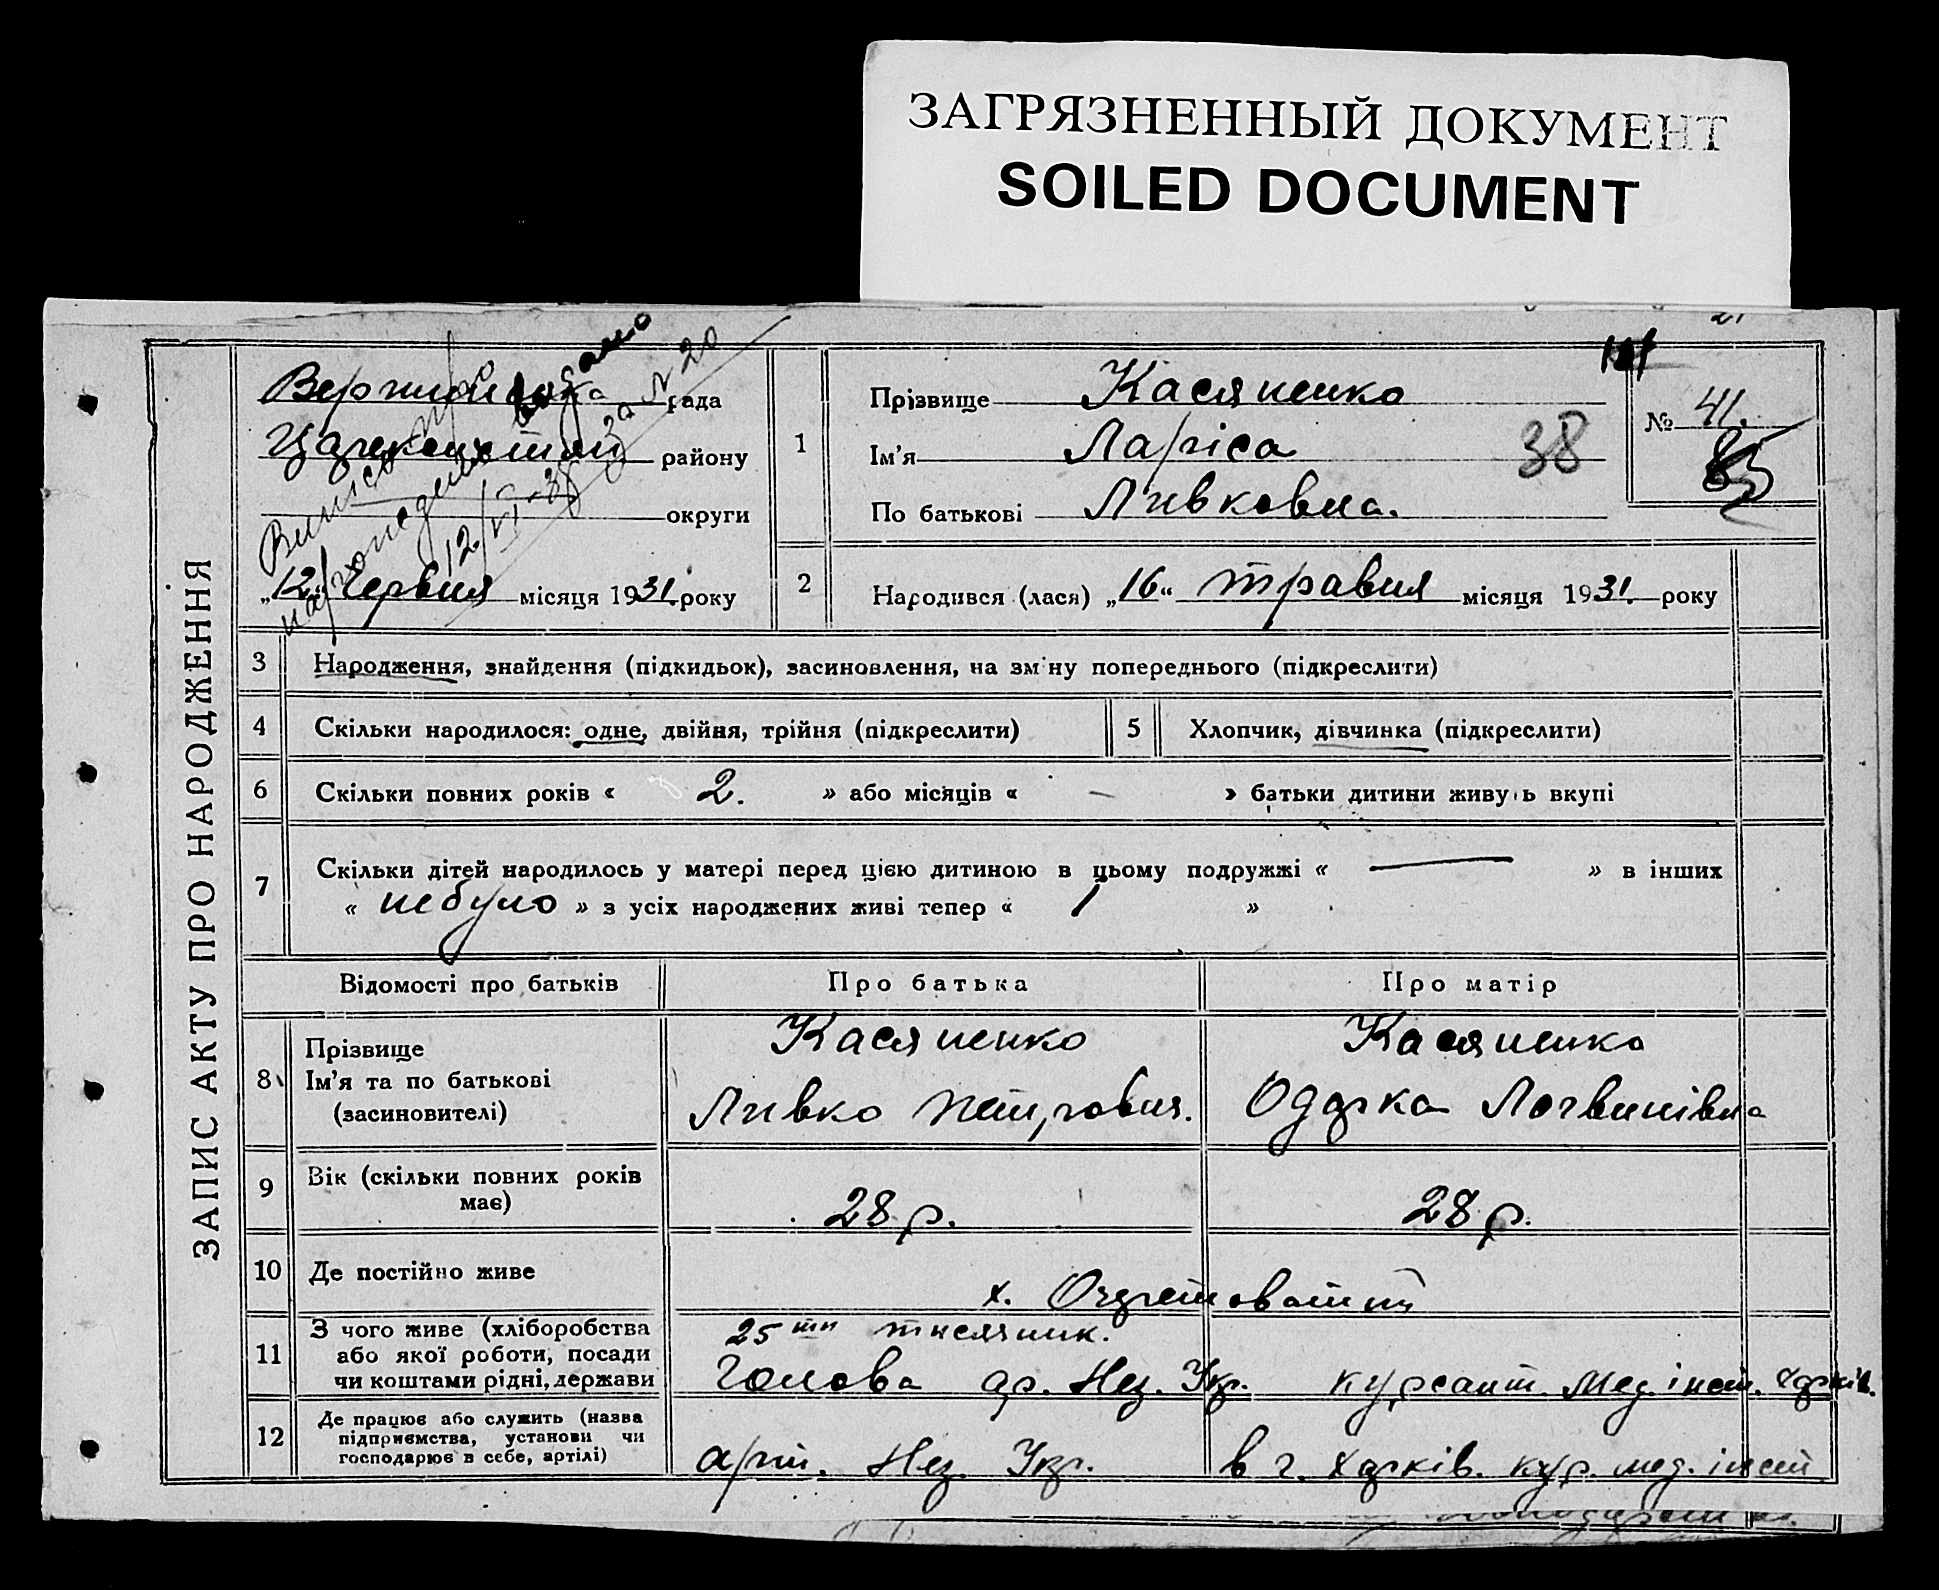 ЗАГРЯЗНЕННЫЙ ДОКУМЕНТ
SOILED DOCUMENT
ЗАПИС АКТУ ПРО НАРОДЖЕННЯ
рада
району
округи
"12" Червня місяця 1931 року
видано
за N 20
12/VI-38
1
Прізвище Касяненко
Ім'я Ларіса
По батькові Ливковна.
38
№ 41.
85
2
Народився (лася) "16" травня місяця 1931. року
3
Народження, знайдення (підкидьок), засиновлення, на зміну попереднього (підкреслити)
4
Скільки народилося: одне, двійня, трійня (підкреслити)
5
Хлопчик, дівчинка (підкреслити)
6
Скільки повних років « 2. » або місяців « — » батьки дитини живуть вкупі
7
Скільки дітей народилось у матері перед цією дитиною в цьому подружжі « — » в інших
« небуло » з усіх народжених живі тепер « 1 »
Відомості про батьків
Про батька
Про матір
8
Прізвище
Ім'я та по батькові
(засиновителі)
Касяненко
Ливко Петрович.
Касяненко
Одарка Логвинівна
9
Вік (скільки повних років
має)
28 р.
28 р.
10
Де постійно живе
х.
11
З чого живе (хліборобства
або якої роботи, посади
чи коштами рідні, держави
25 тисячник.
Голова ар. Нез. Укр.
курсант. Мед. інст. Харків.
12
Де працює або служить (назва
підприємства, установи чи
господарює в себе, артілі)
арт. Нез. Укр.
в г. Харків. кур. мед. інст.